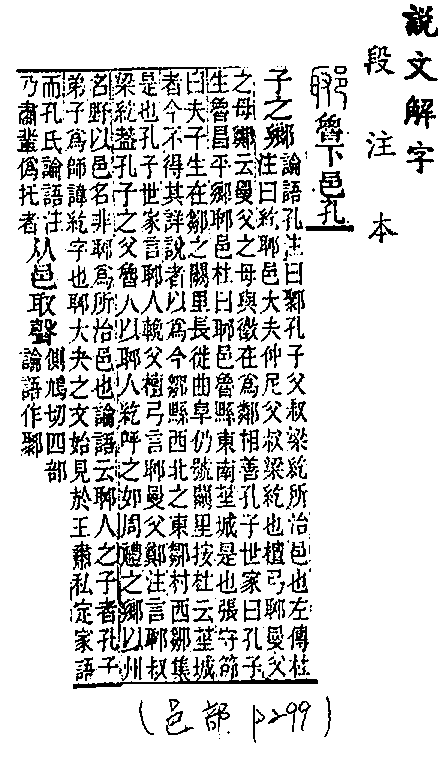 說文解字
段注本
郰魯下邑孔
子之鄉
論語孔注曰鄹孔子父叔梁紇所治邑也左傳杜
注曰紇郰邑大夫仲尼父叔梁紇也檀弓郰曼父
之母鄭云曼父之母與徵在爲鄰相善孔子世家曰孔子
生魯昌平鄉郰邑杜曰郰邑魯縣東南莝城是也張守節
曰夫子生在鄒之闕里長徙曲阜仍號闕里按杜云莝城
者今不得其詳說者以爲今鄒縣西北之東鄒村西鄒集
是也孔子世家言郰人輓父檀弓言郰曼父鄭注言郰叔
梁紇蓋孔子之父魯人以郰人紇呼之如周禮之鄉以州
名野以邑名非郰爲所治邑也論語云郰人之子者孔子
弟子爲師諱紇字也郰大夫之文始見於王肅私定家語
而孔氏論語注
乃肅輩僞托者
从邑取聲
側鳩切四部
論語作鄹
(邑部 p299)